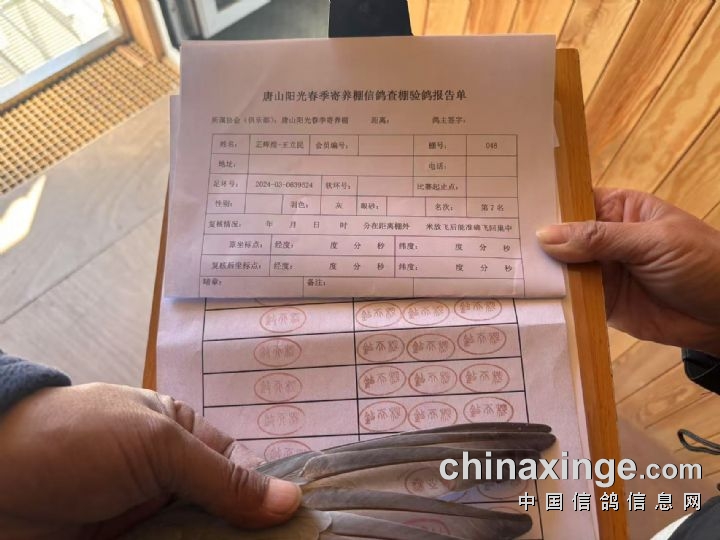 唐山阳光春季寄养棚信鸽查棚验鸽报告单
所属协会（俱乐部）：唐山阳光春季寄养棚 距离： 鸽主签字：
姓名： 正辉煌-王立民 会员编号： 棚号： 046
地址： 电话：
足环号： 2024-03-0639524 软环号： 比赛起止点：
性别： 羽色： 灰 眼砂： 名次： 第7名
复核情况： 年 月 日 时 分在距离棚外 米放飞后能准确飞回巢中
原坐标点： 经度： 度 分 秒 纬度： 度 分 秒
复核后坐标点： 经度： 度 分 秒 纬度： 度 分 秒
暗章： 备注：
chinaxinge.com
中国信鸽信息网